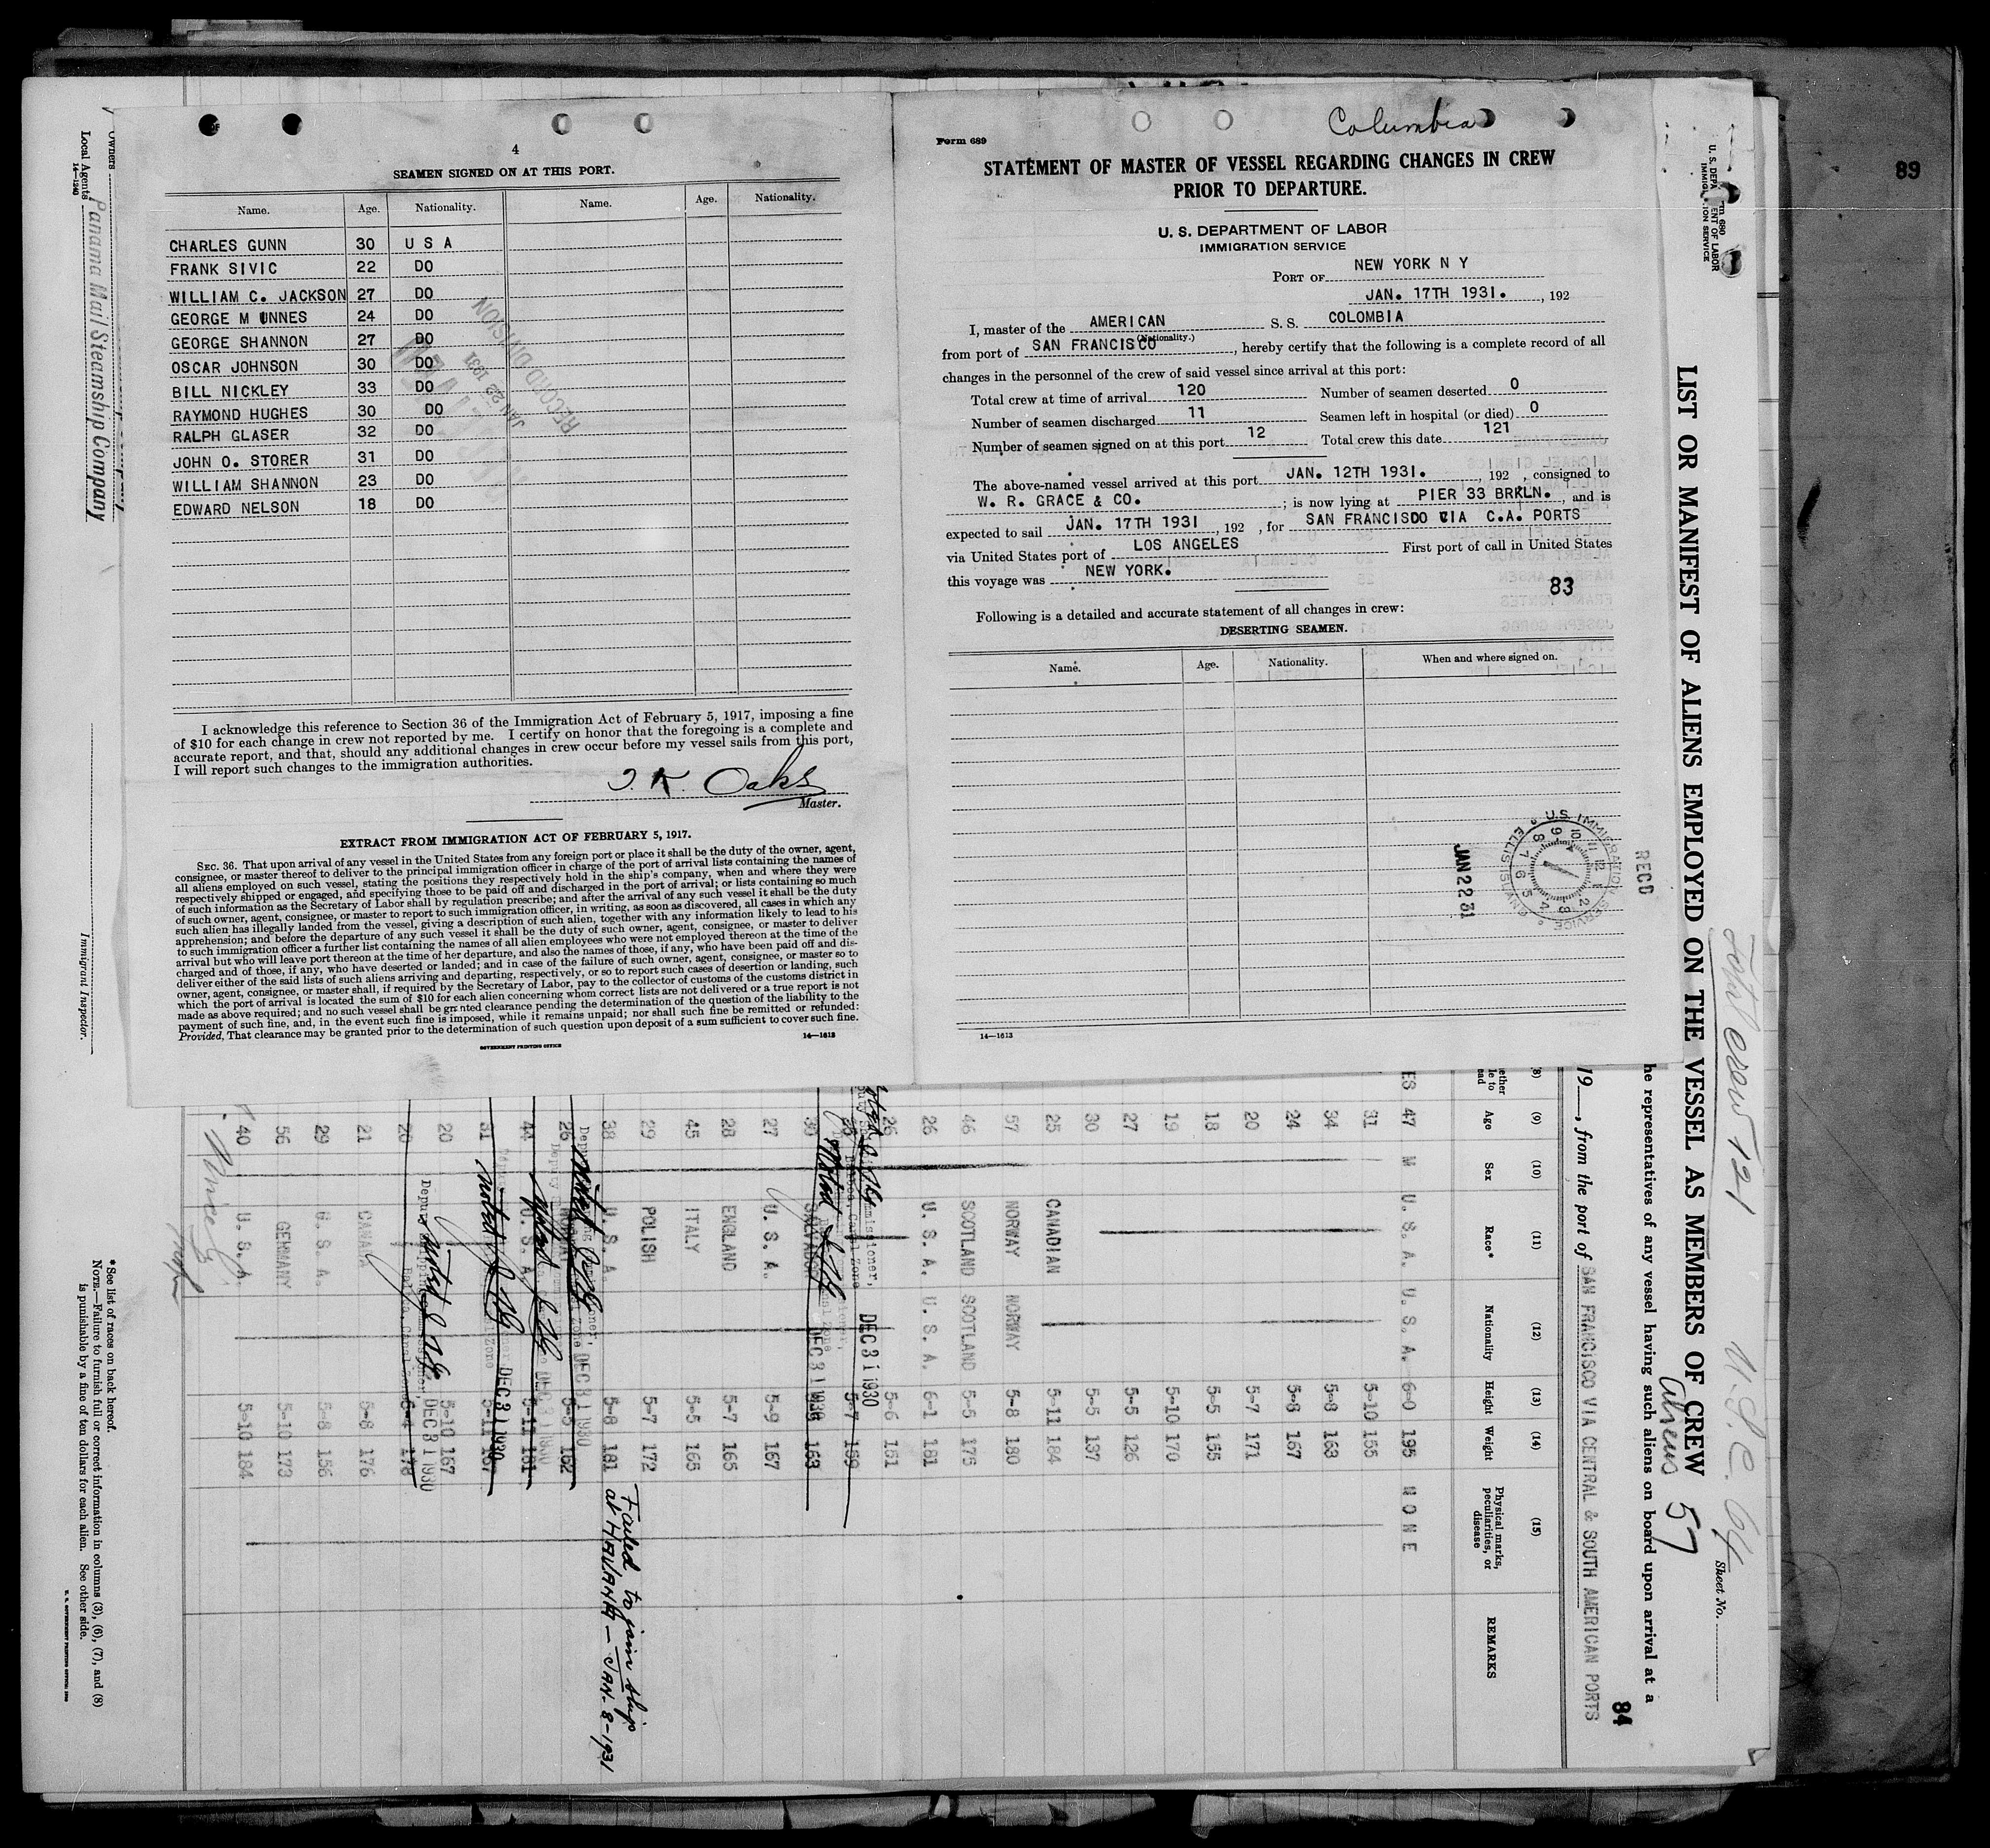 4
SEAMEN SIGNED ON AT THIS PORT.
Name. Age. Nationality. Name. Age. Nationality.
CHARLES GUNN 30 U S A
FRANK SIVIC 22 DO
WILLIAM C. JACKSON 27 DO
GEORGE M UNNES 24 DO
GEORGE SHANNON 27 DO
OSCAR JOHNSON 30 DO
BILL NICKLEY 33 DO
RAYMOND HUGHES 30 DO
RALPH GLASER 32 DO
JOHN O. STORER 31 DO
WILLIAM SHANNON 23 DO
EDWARD NELSON 18 DO
RECORD DIVISION
JAN 22 1931
I acknowledge this reference to Section 36 of the Immigration Act of February 5, 1917, imposing a fine
of $10 for each change in crew not reported by me. I certify on honor that the foregoing is a complete and
accurate report, and that, should any additional changes in crew occur before my vessel sails from this port,
I will report such changes to the immigration authorities.
Oaks
Master.
EXTRACT FROM IMMIGRATION ACT OF FEBRUARY 5, 1917.
SEC. 36. That upon arrival of any vessel in the United States from any foreign port or place it shall be the duty of the owner, agent,
consignee, or master thereof to deliver to the principal immigration officer in charge of the port of arrival lists containing the names of
all aliens employed on such vessel, stating the positions they respectively hold in the ship's company, when and where they were
respectively shipped or engaged, and specifying those to be paid off and discharged in the port of arrival; or lists containing so much
of such information as the Secretary of Labor shall by regulation prescribe; and after the arrival of any such vessel it shall be the duty
of such owner, agent, consignee, or master to report to such immigration officer, in writing, as soon as discovered, all cases in which any
such alien has illegally landed from the vessel, giving a description of such alien, together with any information likely to lead to his
apprehension; and before the departure of any such vessel it shall be the duty of such owner, agent, consignee, or master to deliver
to such immigration officer a further list containing the names of all alien employees who were not employed thereon at the time of the
arrival but who will leave port thereon at the time of her departure, and also the names of those, if any, who have been paid off and dis-
charged and of those, if any, who have deserted or landed; and in case of the failure of such owner, agent, consignee, or master so to
deliver either of the said lists of such aliens arriving and departing, respectively, or so to report such cases of desertion or landing, such
owner, agent, consignee, or master shall, if required by the Secretary of Labor, pay to the collector of customs of the customs district in
which the port of arrival is located the sum of $10 for each alien concerning whom correct lists are not delivered or a true report is not
made as above required; and no such vessel shall be granted clearance pending the determination of the question of the liability to the
payment of such fine, and, in the event such fine is imposed, while it remains unpaid; nor shall such fine be remitted or refunded:
Provided, That clearance may be granted prior to the determination of such question upon deposit of a sum sufficient to cover such fine.
GOVERNMENT PRINTING OFFICE 14—1613
Columbia
Form 689
STATEMENT OF MASTER OF VESSEL REGARDING CHANGES IN CREW
PRIOR TO DEPARTURE.
U. S. DEPARTMENT OF LABOR
IMMIGRATION SERVICE
PORT OF NEW YORK N Y
JAN. 17TH 1931. , 192
I, master of the AMERICAN S. S. COLOMBIA
(Nationality.)
from port of SAN FRANCISCO , hereby certify that the following is a complete record of all
changes in the personnel of the crew of said vessel since arrival at this port:
Total crew at time of arrival 120 Number of seamen deserted 0
Number of seamen discharged 11 Seamen left in hospital (or died) 0
Number of seamen signed on at this port 12 Total crew this date 121
The above-named vessel arrived at this port JAN. 12TH 1931. , 192 , consigned to
W. R. GRACE & CO. ; is now lying at PIER 33 BRKLN. , and is
expected to sail JAN. 17TH 1931 , 192 , for SAN FRANCISDO VIA C.A. PORTS
via United States port of LOS ANGELES First port of call in United States
this voyage was NEW YORK.
83
Following is a detailed and accurate statement of all changes in crew:
DESERTING SEAMEN.
Name. Age. Nationality. When and where signed on.
U.S. IMMIGRATION SERVICE
JAN 22 31
RECD
14—1613
89
Sheet No.
Total crew 121 U.S.C. 64
LIST OR MANIFEST OF ALIENS EMPLOYED ON THE VESSEL AS MEMBERS OF CREW
Aliens 57
he representatives of any vessel having such aliens on board upon arrival at a
84
19 , from the port of SAN FRANCISCO VIA CENTRAL & SOUTH AMERICAN PORTS
(8) (9) (10) (11) (12) (13) (14) (15)
Age Sex Race* Nationality Height Weight Physical marks, peculiarities, or disease REMARKS
47 M U. S. A. U. S. A. 6-0 195 N O N E
31 5-10 155
34 5-8 163
24 5-8 167
20 5-7 171
18 5-5 155
19 5-10 170
27 5-5 126
30 5-5 137
25 CANADIAN 5-11 184
57 NORWAY NORWAY 5-8 180
46 SCOTLAND SCOTLAND 5-5 175
26 U. S. A. U. S. A. 6-1 181
26 5-6 151
DEC 31 1930
5-7 159
30 SALVADOR DEC 31 1930 163
27 U. S. A. 5-9 167
28 ENGLAND 5-7 165
45 ITALY 5-5 165
29 POLISH 5-7 172
38 U. S. A. 5-8 181
Failed to join ship
at HAVANA — JAN. 8-1931
26 DEC 31 1930 5-5 162
44 U. S. A. 5-11 161
31 DEC 31 1930 5-11
20 5-10 167
DEC 31 1930
21 CANADA 5-8 176
29 U. S. A. 5-8 156
56 GERMANY 5-10 173
40 U. S. A. 5-10 184
*See list of races on back hereof.
NOTE.—Failure to furnish full or correct information in columns (3), (6), (7), and (8)
is punishable by a fine of ten dollars for each alien. See other side.
Owners
Local Agents Panama Mail Steamship Company
14—1240
Immigrant Inspector.